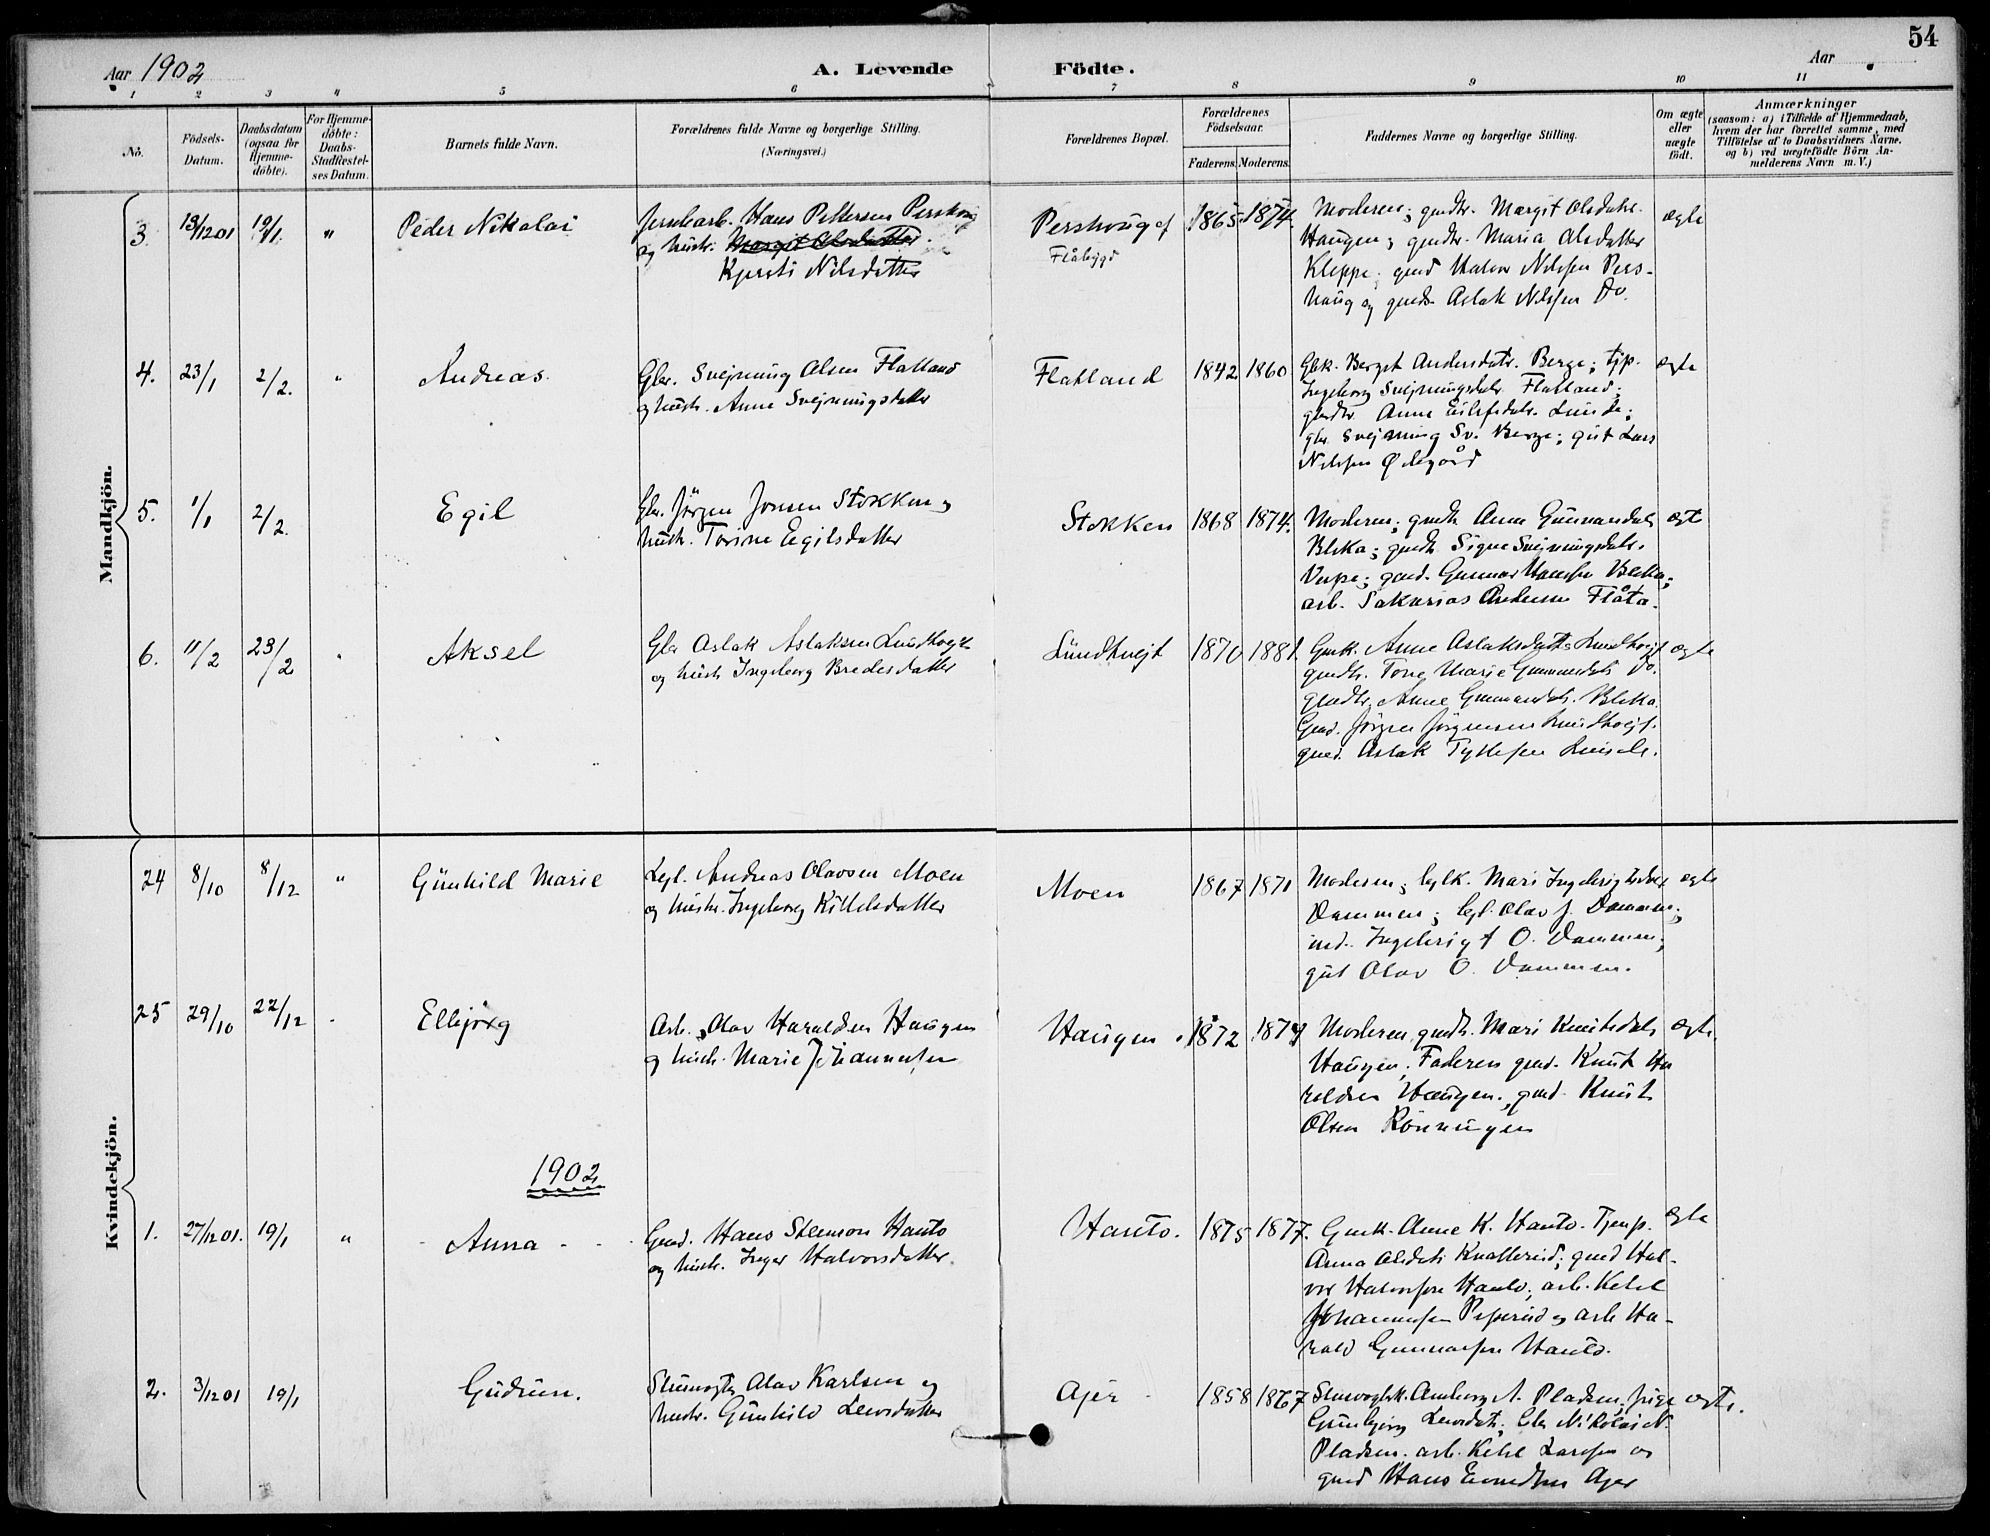 54
Aar 1902
A. Levende Födte.
Aar
1 2 3 4 5 6 7 8 9 10 11
No.
Födsels-
Datum.
Daabsdatum
(ogsaa for
Hjemme-
döbte).
For Hjemme-
döbte:
Daabs-
Stadfæstel-
ses Datum.
Barnets fulde Navn.
Forældrenes fulde Navne og borgerlige Stilling.
(Næringsvei.)
Forældrenes Bopæl.
Forældrenes
Födselsaar.
Faderens. Moderens.
Faddernes Navne og borgerlige Stilling.
Om ægte
eller
uægte
födt.
Anmærkninger
(saasom: a) i Tilfælde af Hjemmedaab,
hvem der har forrettet samme, med
Tilföielse af to Daabsvidners Navne.
og b) ved uægtefödte Börn An-
melderens Navn m. V.)
Mandkjön.
3 13/12 01 19/1 " Peder Nikolai
Hans Pettersen
og hustr. Margit Olsdatter
Kjersti Nilsdatter
Flåbygd
1865 1874.
Moderen; gmdtr. Margit Olsdatr.
Haugen; gmdtr. Maria Olsdatter
Kleppe; gmd Halvor Nilssen Pers-
haug og gmds Aslak Nilssen Do.
ægte
4. 23/1 2/2. " Andreas.
Gbr. Svejnung Olsen Flatland
og hustr. Anne Svejnungsdatter
Flatland 1842 1860
Gbk. Berget Andersdatr. Berge; tjp.
Ingeborg Svejnungsdatr Flatland;
Anne Eilefsdatr. Lunde;
gbr Svejnung Sv. Berge; gut Lars
Nilssen Ødegård
ægte
5. 1/1 2/2. Egil
Gbr. Jörgen Jonsen Stokken og
hustr. Torine Egilsdatter
Stokken 1868 1874.
Moderen; gmdtr Anne Gunnarsdatr
Bleka; gmdtr Signe Svejnungsdatr.
gmd. Gunnar Hansen Bleka;
arb. Sakarias Andersen Flåta.
ægte
6. 11/2 23/2 " Aksel
Gbr Aslak Aslaksen Lundtvejt
og hustr Ingeborg Bredesdatter
Lundtvejt 1870 1881.
Anne Aslaksdatter Lundtvejt
gmdtr. Tone Marie Gunnarsdatr Do.
gmdtr. Anne Gunnarsdatr. Bleka.
Gmd. Jörgen Jörgensen Lundtvejt.
gmd. Aslak Lunde.
ægte
Kvindekjön.
24 8/10 8/12 " Gunhild Marie
Lejl. Andreas Olavsen Moen
og hustr. Ingeborg Kittelsdatter
Moen 1867 1871
Moderen; lejlk. Mari
Dammen; lejl. Olav J. Dammen;
ind. Ingebrigt O. Dammen;
gut Olav O. Dammen.
ægte
25 29/10 22/12 . Elbjörg
Arb. Olav Haraldsen Haugen
og hustr. Marie Johannessen
Haugen 1872
Moderen, gmdtr. Mari Knutsdatr
Haugen; Faderen gmd. Knut Ha
raldsen Haugen., gmd. Knut
Olsen Rönningen
ægte.
1902
1. 27/12 01. 19/1 " Anna
Gmd. Hans Steenson Hauto
og hustr. Inger Halvorsdatter.
Hauto. 1875 1877.
Gmk. Anne K. Hauto. Tjenp.
Anna Olsdatr gmd Hal-
vor Halvorsen Hauto; arb. Ketil
Johannessen og arb Ha-
rald Gunnarsen Hauto.
ægte
2. 3/12 01 19/1 Gudrun.
Olav Karlsen og
hustr. Gunhild Leivsdatter
Ajer 1858 1867
Pladsen. pige
Gunbjörg Leivsdatr; Nikolai N.
Pladsen. arb. Ketil Larssen og
gmd Hans Ajer
ægte.